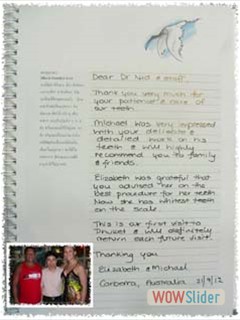 Dear Dr Nod & staff,
Thank you very much for
your patience & care of
our teeth.
Michael was very impressed
with your delicate &
detailed work on his
teeth & will highly
recommend you to family
& friends.
Elizabeth was grateful that
you advised her on the
best procedure for her teeth.
Now she has whitest teeth
on the scale.
This is our first visit to
Phuket & will definitely
return each future visit.
Thanking you
Elizabeth & Michael
Canberra, Australia 21/9/12
WOWSlider